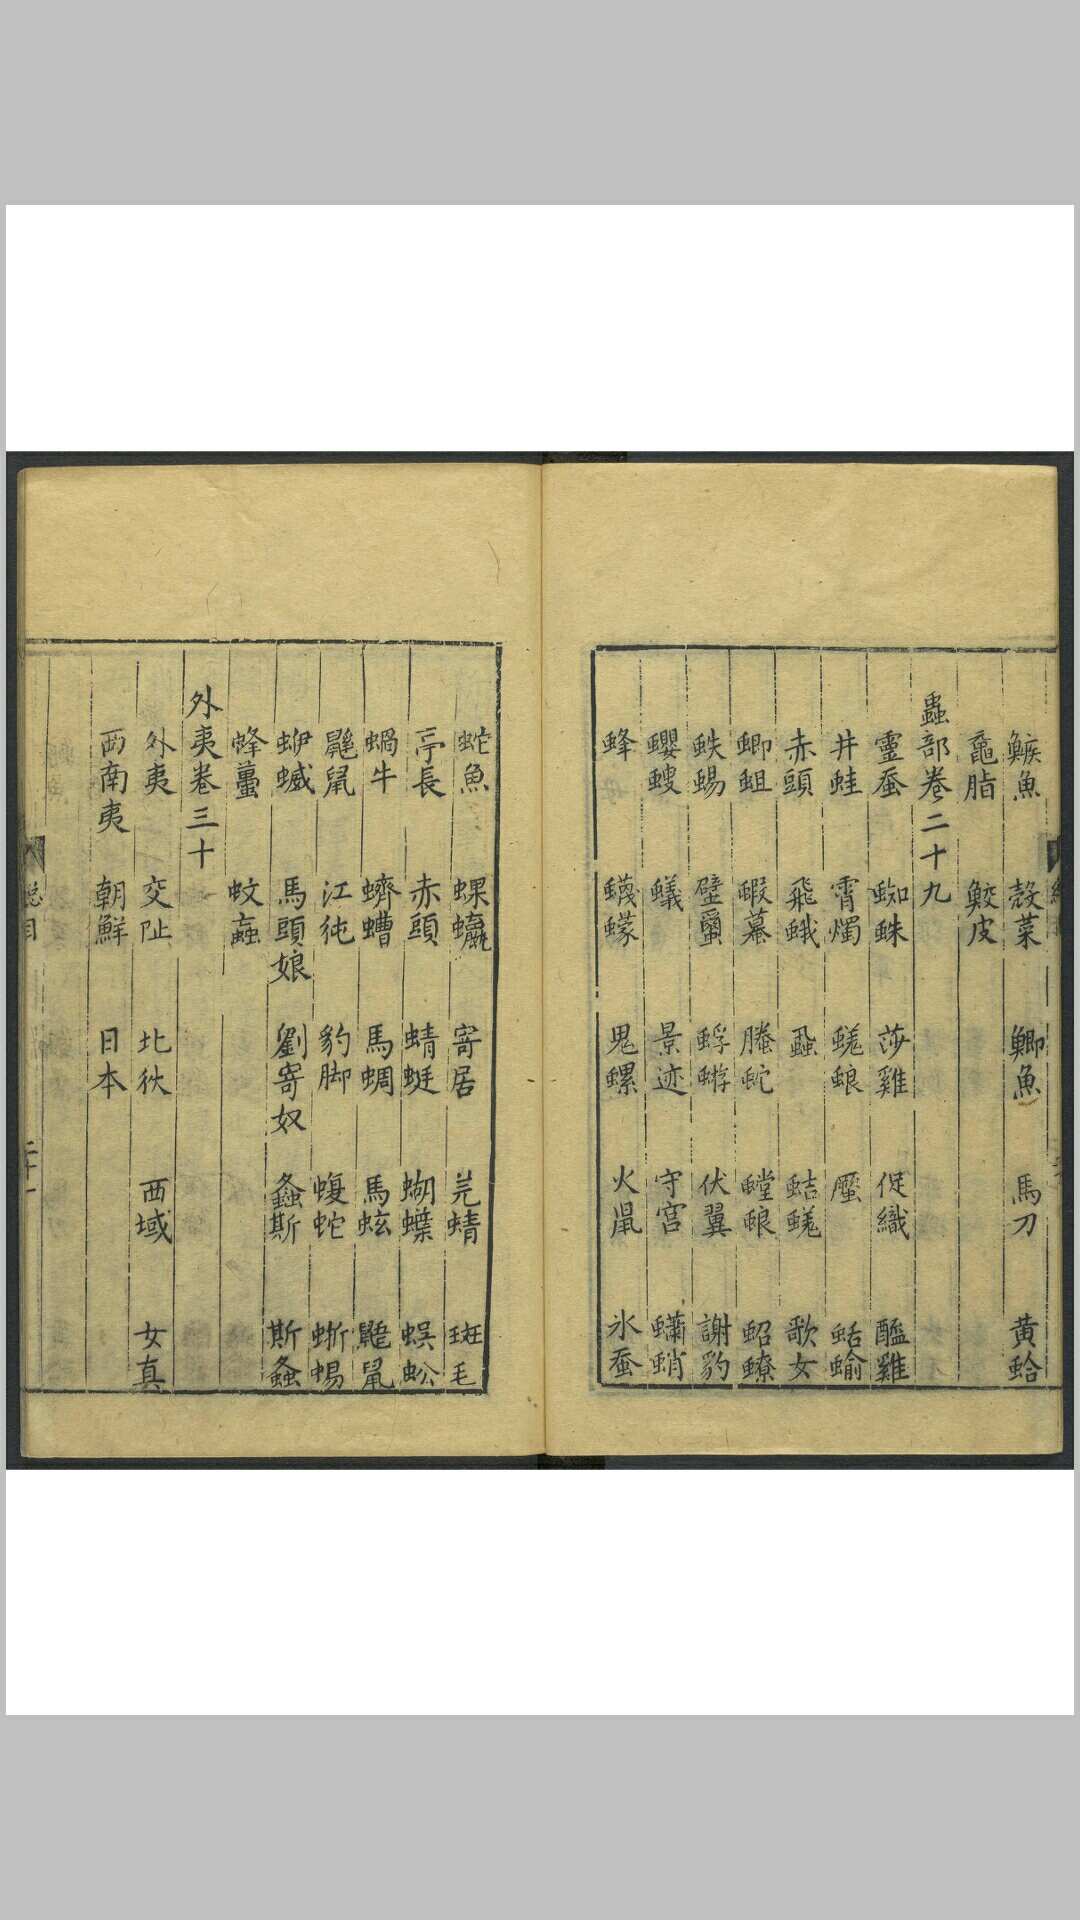 鰶魚 殼菜 鯽魚 馬刀 黄蛤
黿脂 鮫皮
蟲部卷二十九
靈蚕 蜘蛛 莎雞 促織 醯雞
井蛙 霄燭 蜣蜋 蜃 蛞蝓
赤頭 飛蛾 蝨 蛣蜣 歌女
蝍蛆 蝦蟇 螣蛇 螳蜋 蛁蟟
蛈蜴 壁蝨 蜉蝣 伏翼 謝豹
蠳螋 蟻 景迹 守宮 蠨蛸
蜂 蠛蠓 鬼螺 火鼠 氷蚕
蛇魚 蜾蠃 寄居 芫蜻 斑毛
亭長 赤頭 蜻蜓 蝴蝶 蜈蚣
蝸牛 蠐螬 馬蜩 馬蚿 鼯鼠
鼴鼠 江㹠 豹脚 蝮蛇 蜥蜴
蛜蝛 馬頭娘 劉寄奴 螽斯 斯螽
蜂蠆 蚊蝱
外夷卷三十
外夷 交阯 北狄 西域 女真
西南夷 朝鮮 日本
總目
二十一